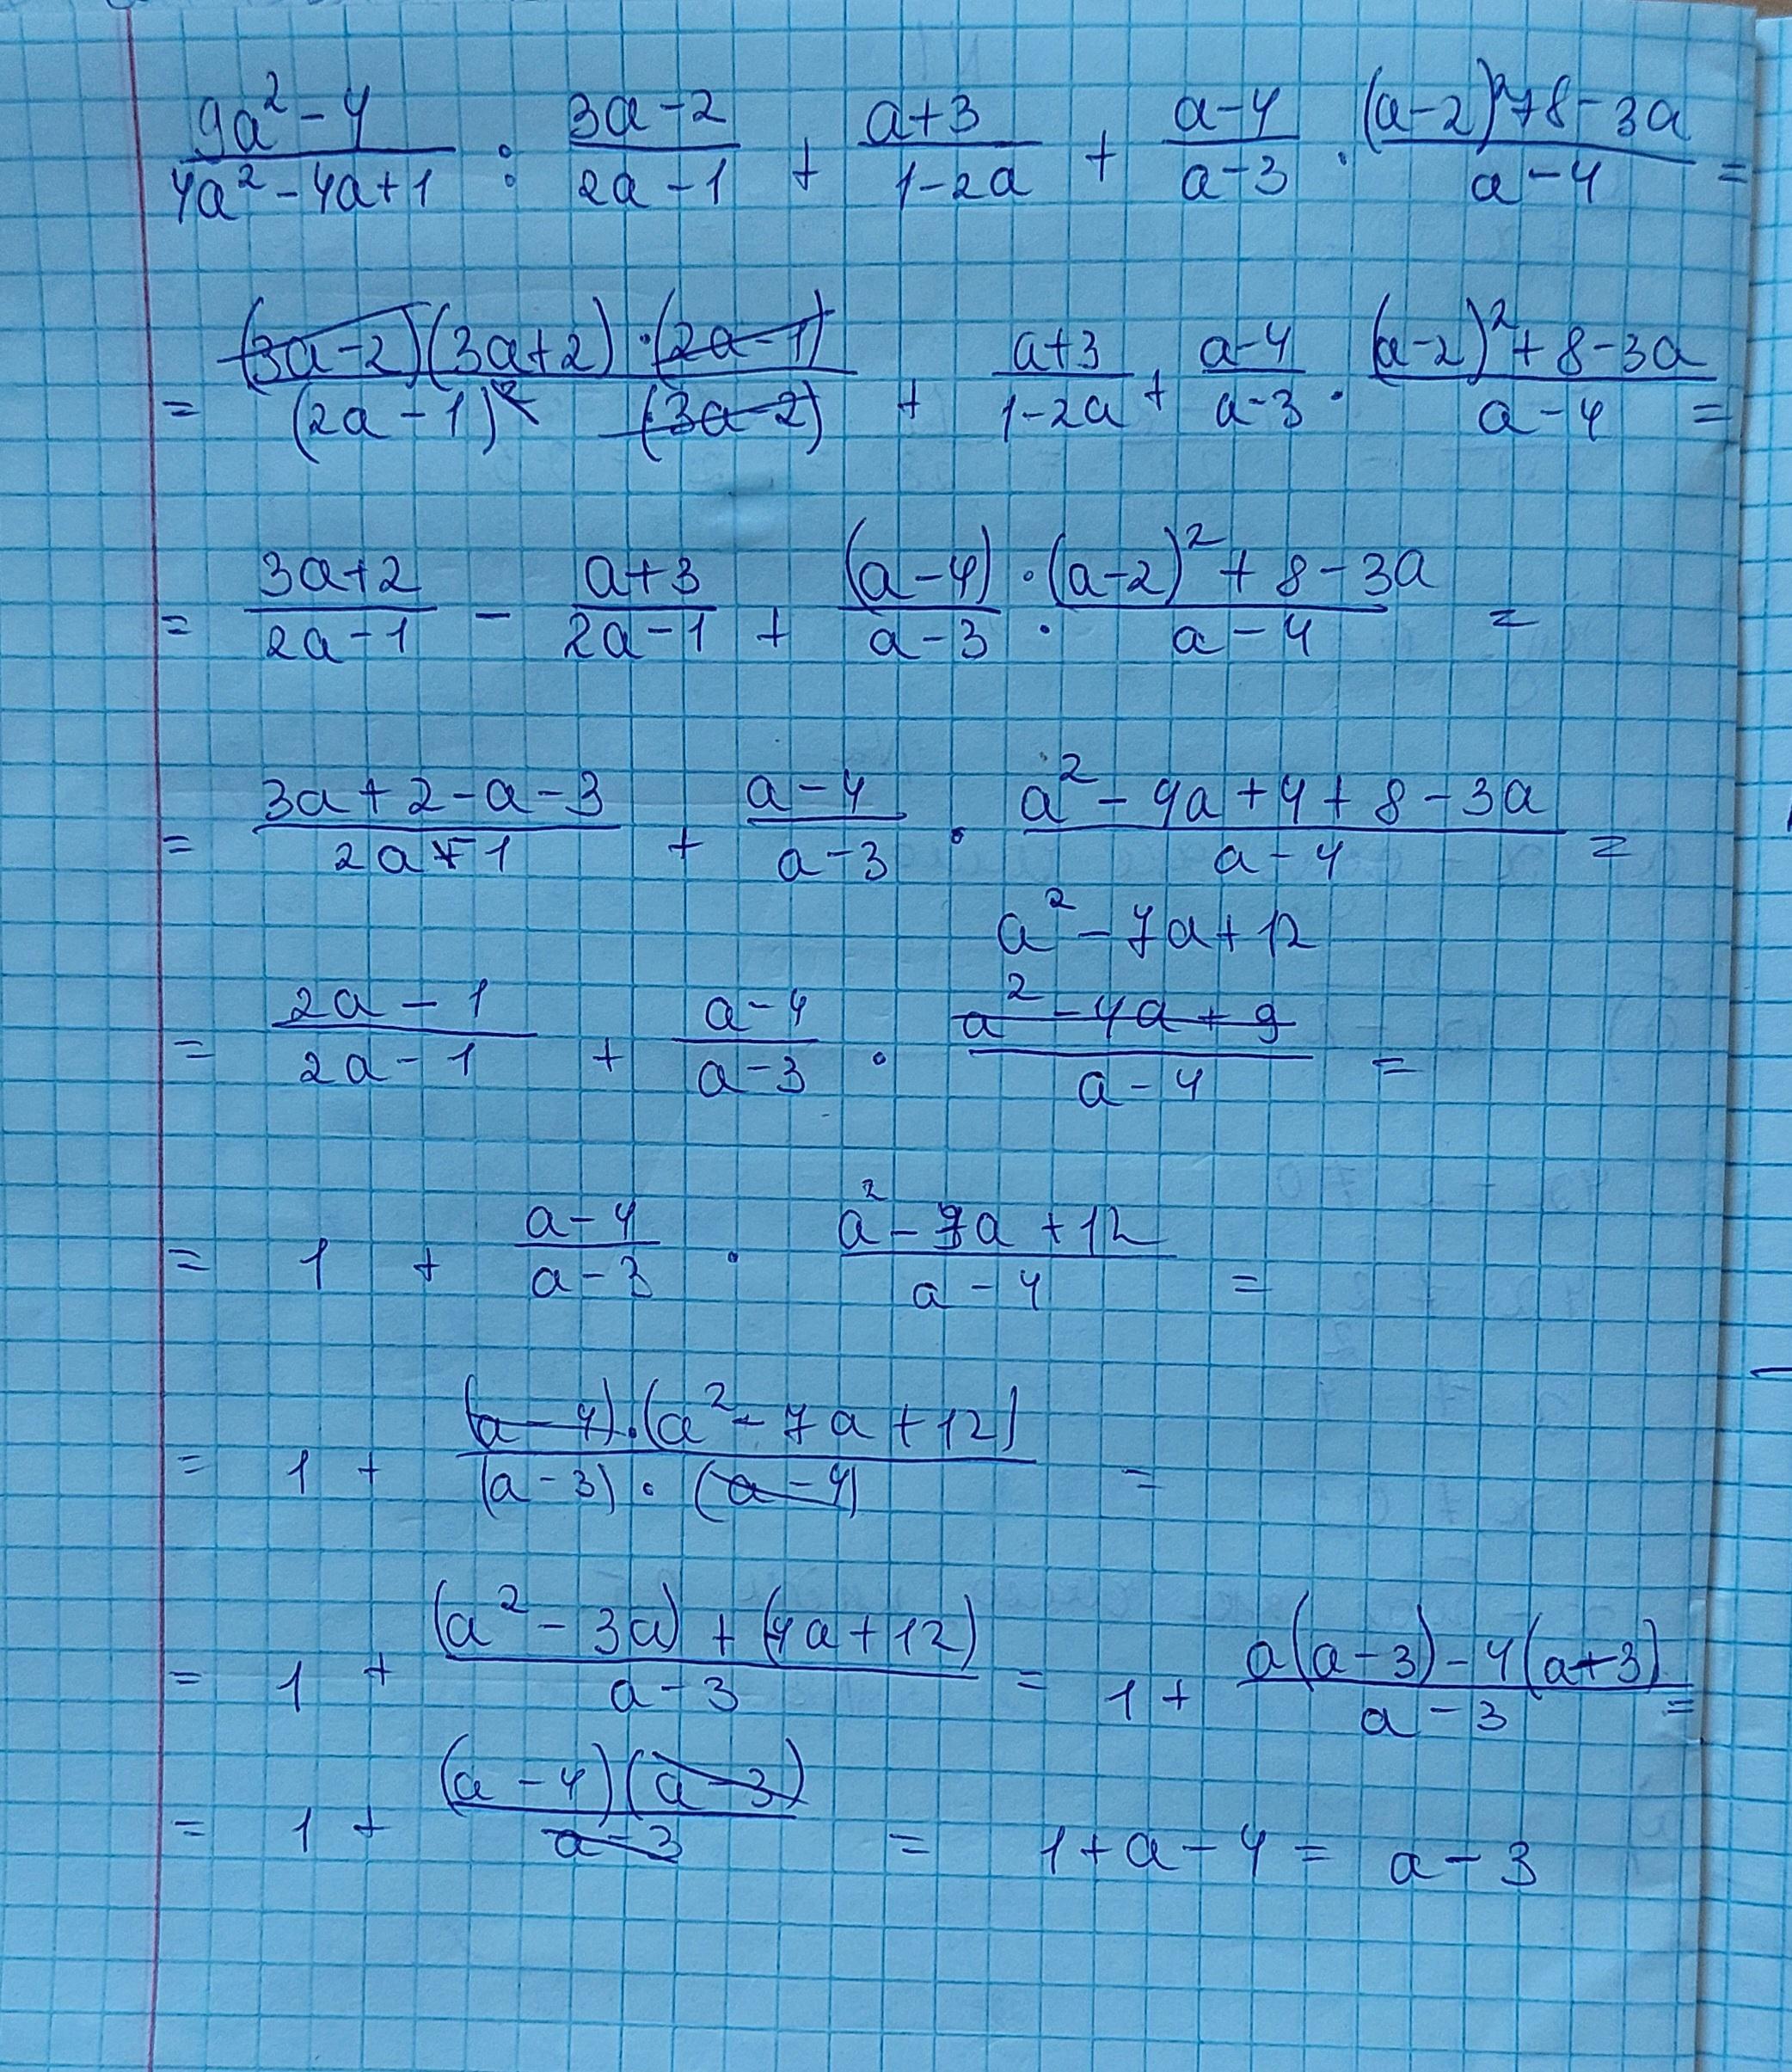 (9a² - 4)/(4a² - 4a + 1) : (3a - 2)/(2a - 1) + (a + 3)/(1 - 2a) + (a - 4)/(a - 3) · ((a - 2)² + 8 - 3a)/(a - 4) =
= ((3a - 2)(3a + 2) · (2a - 1))/((2a - 1)² (3a - 2)) + (a + 3)/(1 - 2a) + (a - 4)/(a - 3) · ((a - 2)² + 8 - 3a)/(a - 4) =
= (3a + 2)/(2a - 1) - (a + 3)/(2a - 1) + (a - 4)/(a - 3) · ((a - 2)² + 8 - 3a)/(a - 4) =
= (3a + 2 - a - 3)/(2a - 1) + (a - 4)/(a - 3) · (a² - 4a + 4 + 8 - 3a)/(a - 4) =
a² - 7a + 12
= (2a - 1)/(2a - 1) + (a - 4)/(a - 3) · (a² - 4a + 9)/(a - 4) =
= 1 + (a - 4)/(a - 3) · (a² - 7a + 12)/(a - 4) =
= 1 + ((a - 4) · (a² - 7a + 12))/((a - 3) · (a - 4)) =
= 1 + ((a² - 3a) + (4a + 12))/(a - 3) = 1 + (a(a - 3) - 4(a + 3))/(a - 3) =
= 1 + ((a - 4)(a - 3))/(a - 3) = 1 + a - 4 = a - 3